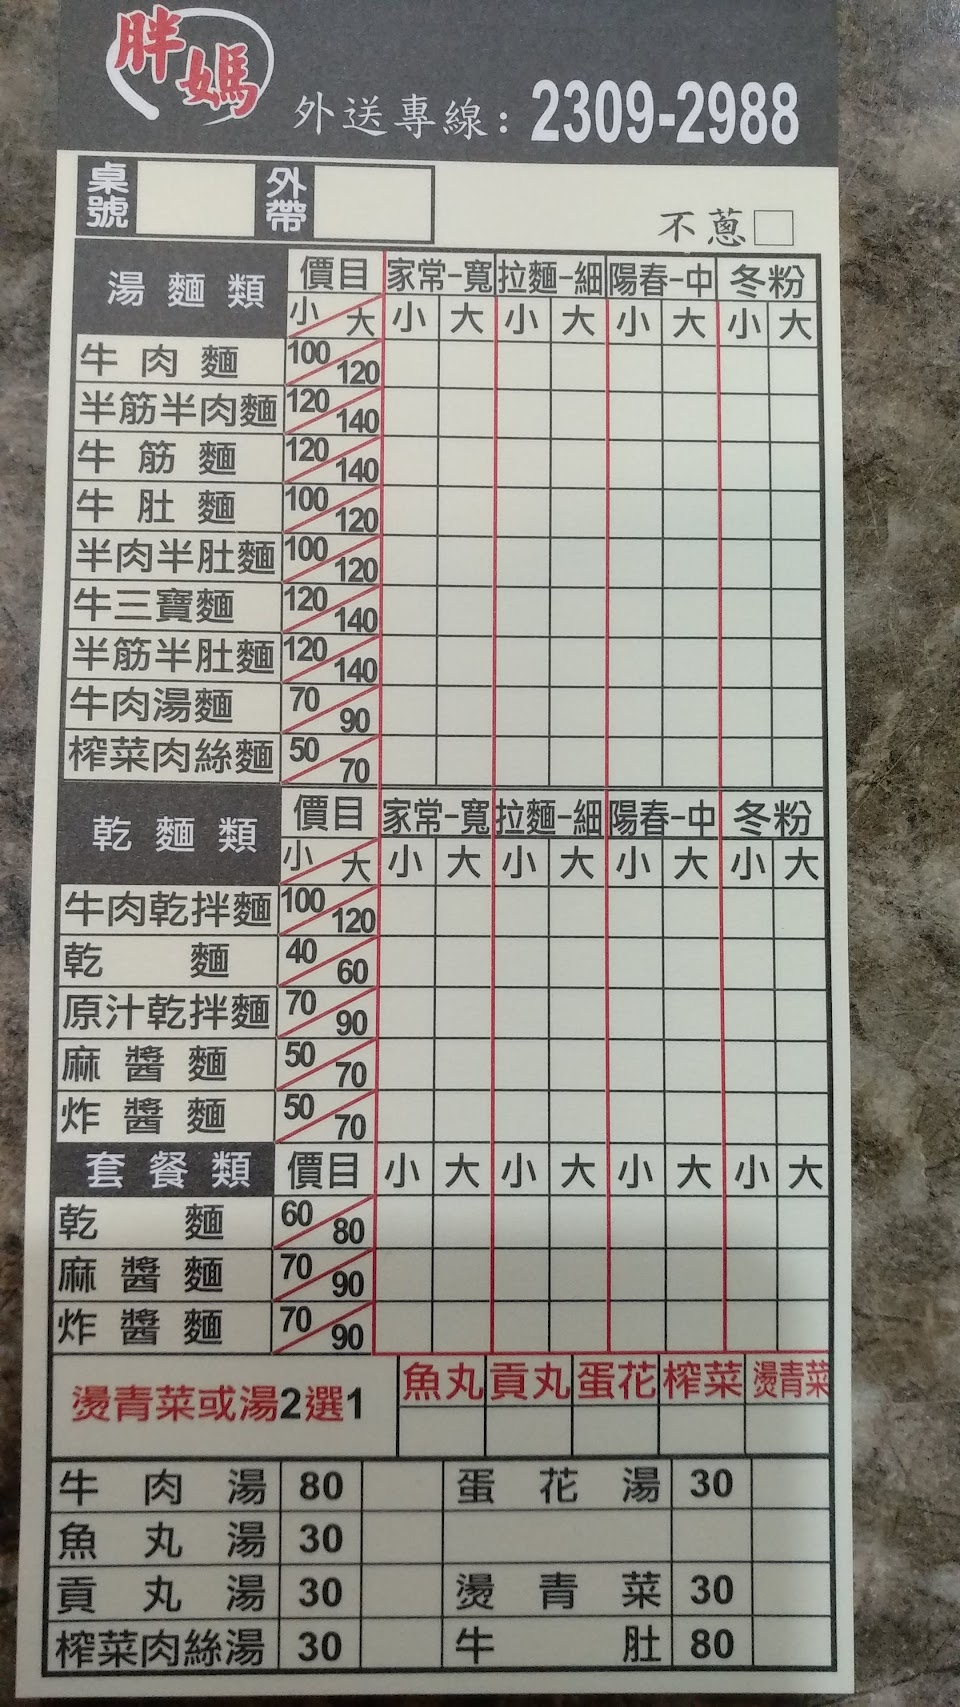 胖媽
外送專線:2309-2988
桌號 外帶
不蔥
湯麵類 價目 家常-寬 拉麵-細 陽春-中 冬粉
小 大 小 大 小 大 小 大 小 大
牛肉麵 100 120
半筋半肉麵 120 140
牛筋麵 120 140
牛肚麵 100 120
半肉半肚麵 100 120
牛三寶麵 120 140
半筋半肚麵 120 140
牛肉湯麵 70 90
榨菜肉絲麵 50 70
乾麵類 價目 家常-寬 拉麵-細 陽春-中 冬粉
小 大 小 大 小 大 小 大 小 大
牛肉乾拌麵 100 120
乾麵 40 60
原汁乾拌麵 70 90
麻醬麵 50 70
炸醬麵 50 70
套餐類 價目 小 大 小 大 小 大 小 大
乾麵 60 80
麻醬麵 70 90
炸醬麵 70 90
燙青菜或湯2選1 魚丸 貢丸 蛋花 榨菜 燙青菜
牛肉湯 80 蛋花湯 30
魚丸湯 30
貢丸湯 30 燙青菜 30
榨菜肉絲湯 30 牛肚 80